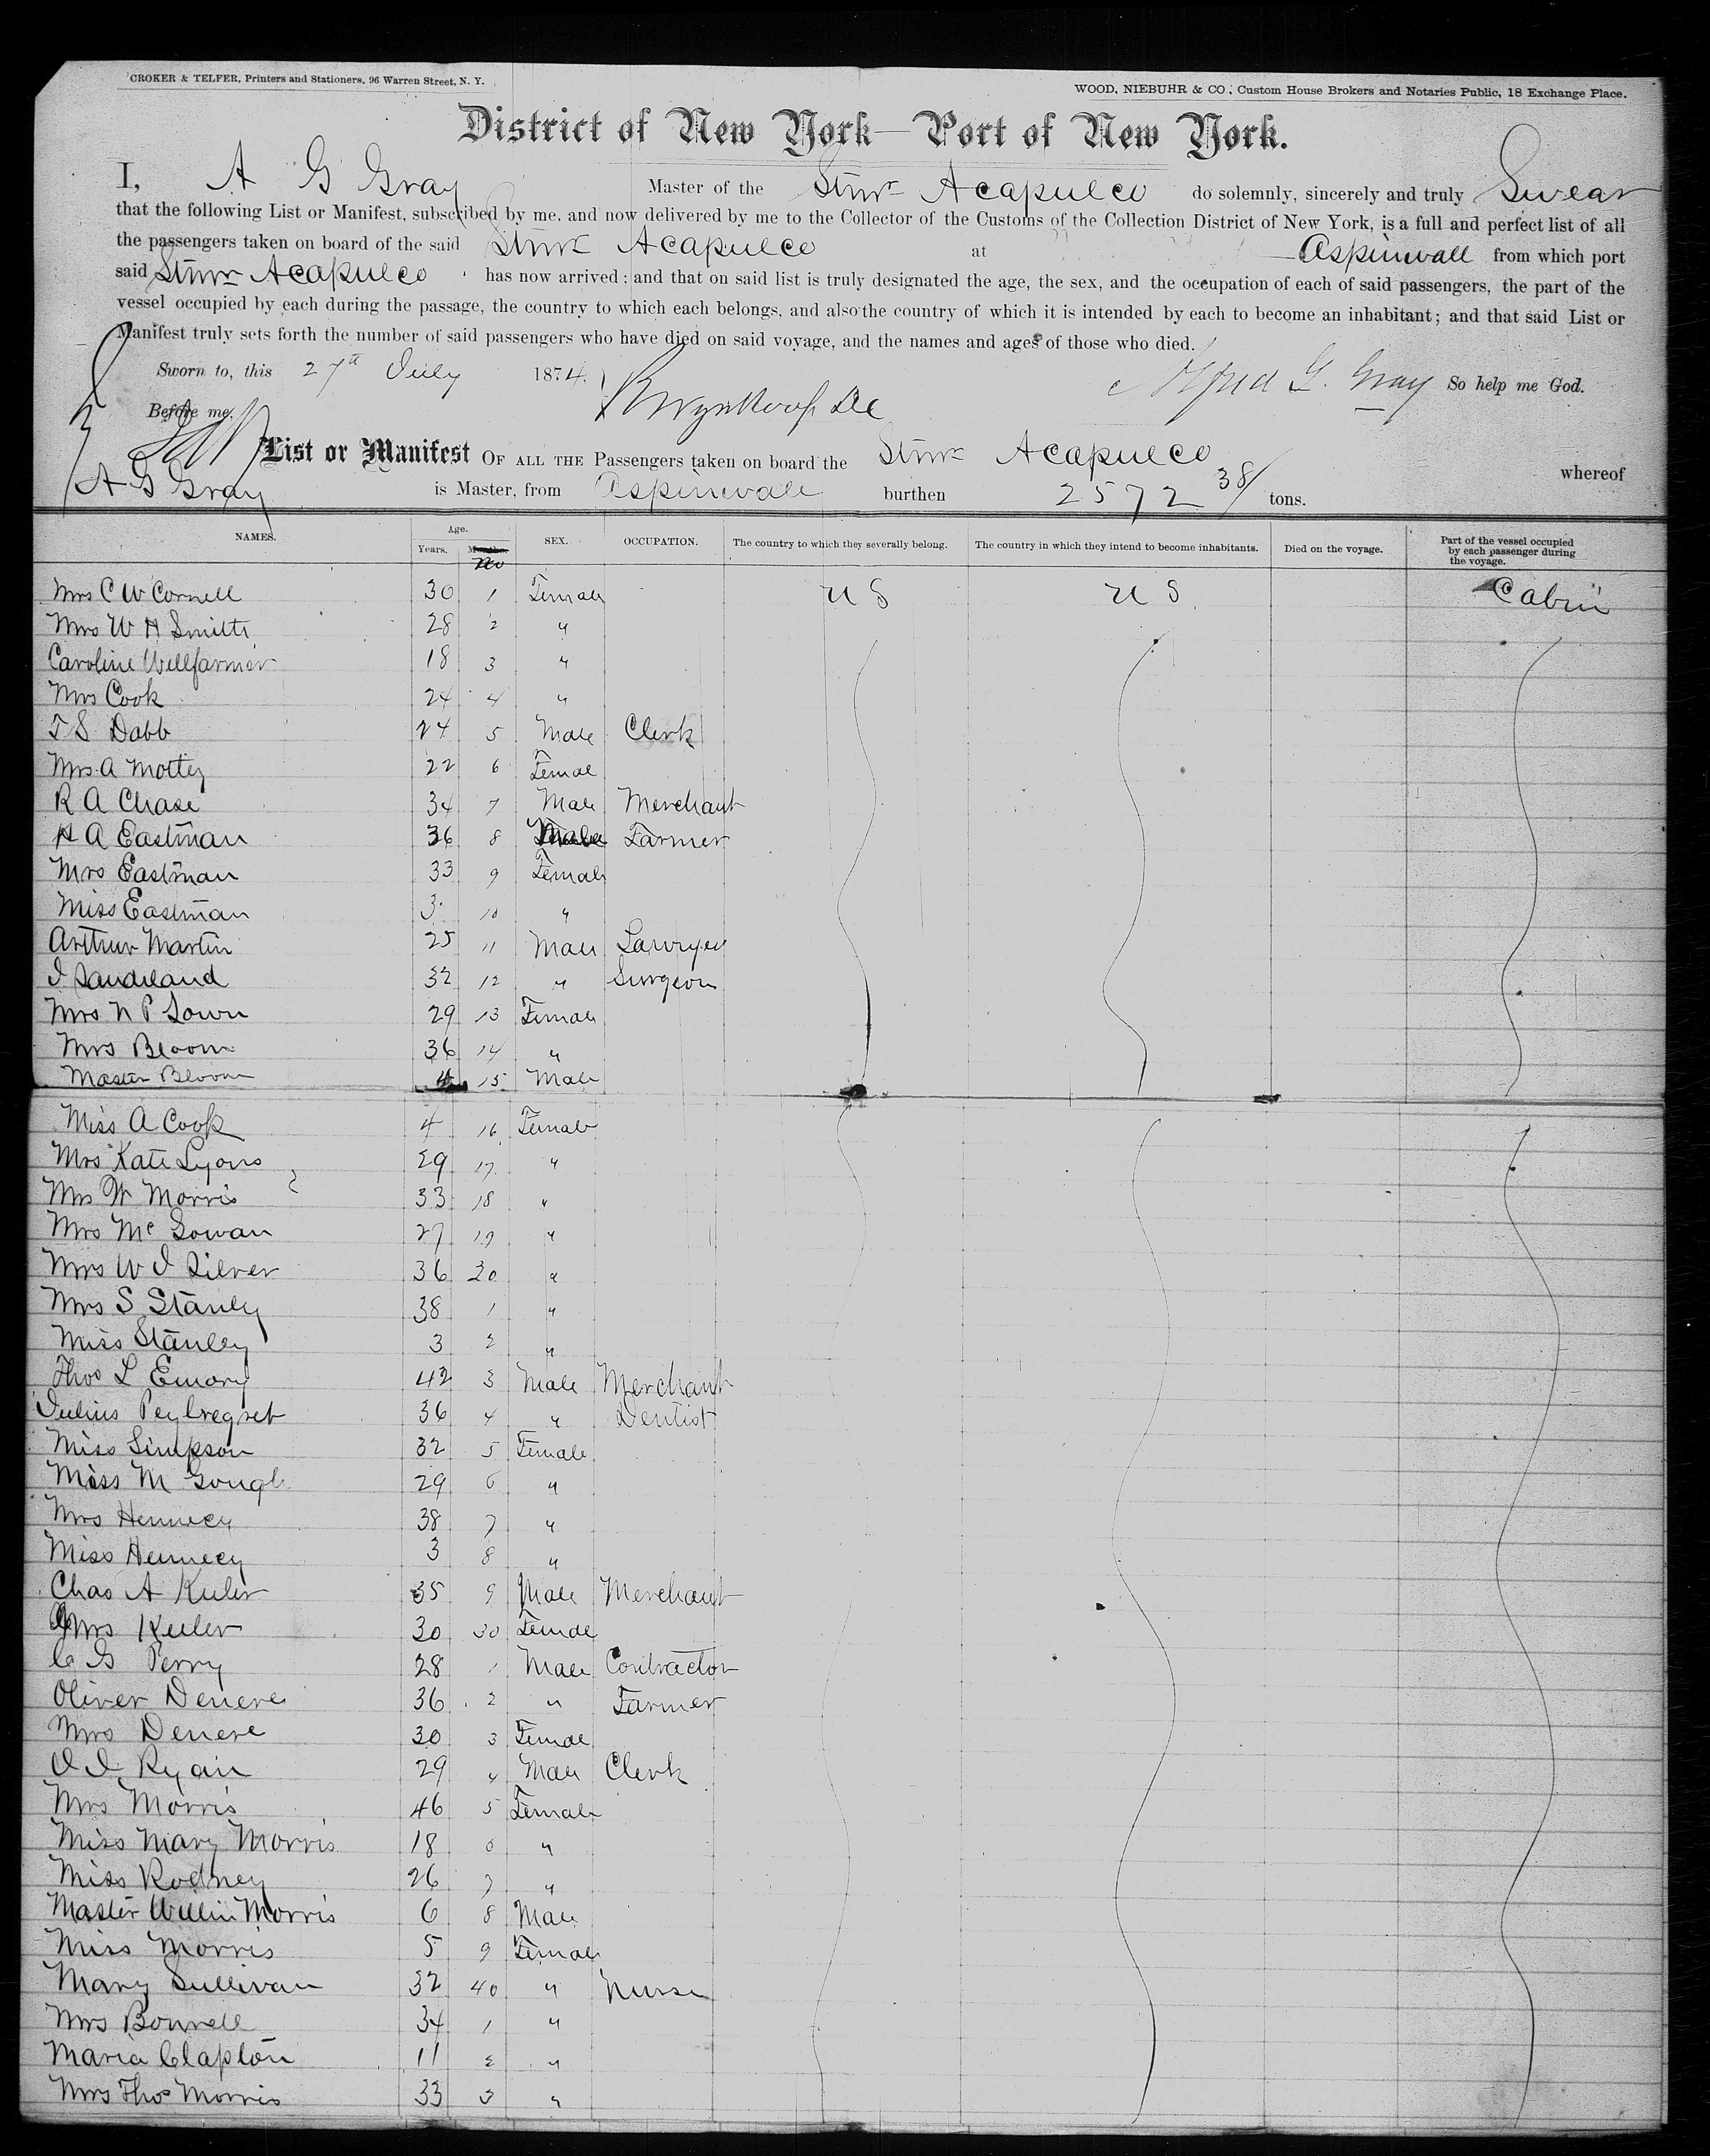 CROKER & TELFER, Printers and Stationers, 96 Warren Street, N. Y.
WOOD, NIEBUHR & CO., Custom House Brokers and Notaries Public, 18 Exchange Place.
District of New York—Port of New York.
I, A G Gray Master of the Stmr Acapulco do solemnly, sincerely and truly Swear
that the following List or Manifest, subscribed by me, and now delivered by me to the Collector of the Customs of the Collection District of New York, is a full and perfect list of all
the passengers taken on board of the said Stmr Acapulco at Aspinwall from which port
said Stmr Acapulco has now arrived; and that on said list is truly designated the age, the sex, and the occupation of each of said passengers, the part of the
vessel occupied by each during the passage, the country to which each belongs, and also the country of which it is intended by each to become an inhabitant; and that said List or
Manifest truly sets forth the number of said passengers who have died on said voyage, and the names and ages of those who died.
Sworn to, this 27th July 1874. Alfred G. Gray So help me God.
Before me,
List or Manifest OF ALL THE Passengers taken on board the Stmr Acapulco whereof
A G Gray is Master, from Aspinwall burthen 2572 38/ tons.
NAMES. Age. Years. Months. No SEX. OCCUPATION. The country to which they severally belong. The country in which they intend to become inhabitants. Died on the voyage. Part of the vessel occupied by each passenger during the voyage.
Mrs C W Cornell 30 1 Female U S U S Cabin
Mrs W H Smith 28 2 "
Caroline Willfarmer 18 3 "
Mrs Cook 24 4 "
T S Dabb 24 5 Male Clerk
Mrs A Mottey 22 6 Female
R A Chase 34 7 Male Merchant
H A Eastman 36 8 Male Farmer
Mrs Eastman 33 9 Female
Miss Eastman 3 10 "
Arthur Martin 25 11 Male Lawyer
J Sandeland 32 12 " Surgeon
Mrs N P Lown 29 13 Female
Mrs Bloom 36 14 "
Master Bloom 4 15 Male
Miss A Cook 4 16 Female
Mrs Kate Lyons 29 17 "
Mrs W Morris 33 18 "
Mrs Mc Gowan 27 19 "
Mrs W J Silver 36 20 "
Mrs S Stanly 38 1 "
Miss Stanley 3 2 "
Thos L Emory 42 3 Male Merchant
Julius 36 4 " Dentist
Miss Simpson 32 5 Female
Miss M Gough 29 6 "
Mrs Hennecy 38 7 "
Miss Hennecy 3 8 "
Chas A Kuler 35 9 Male Merchant
Mrs Kuler 30 30 Female
C G Perry 28 1 Male Contractor
Oliver Denere 36 2 " Farmer
Mrs Denere 30 3 Female
J J Ryan 29 4 Male Clerk
Mrs Morris 46 5 Female
Miss Mary Morris 18 6 "
Miss Rodney 26 7 "
Master Willie Morris 6 8 Male
Miss Morris 5 9 Female
Mary Sullivan 32 40 " Nurse
Mrs Bonnell 34 1 "
Maria Clapton 11 2 "
Mrs Thos Morris 33 3 "